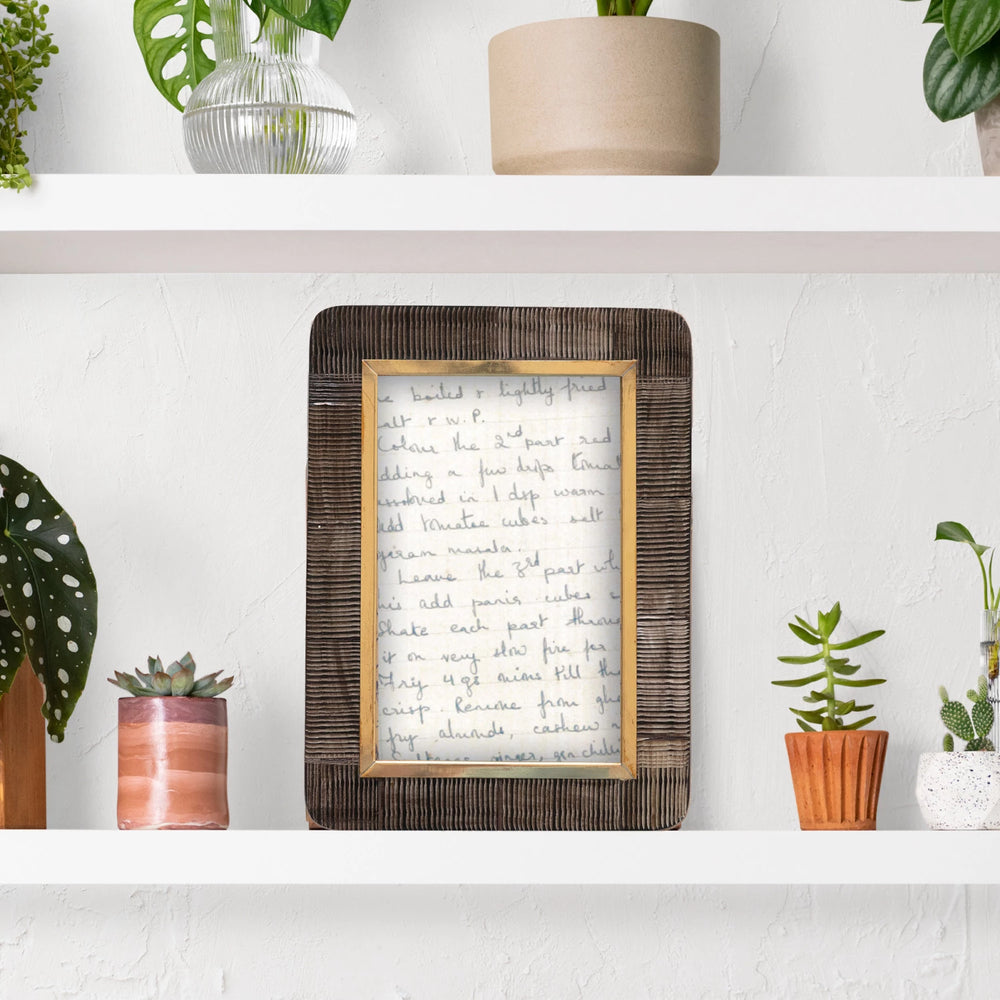 e boiled & lightly fried
alt & W.P.
Colour the 2nd part red
dding a few drps tomat
issolved in 1 dsp warm
dd tomatoe cubes salt
garam masala.
Leave the 3rd part wh
his add panir cubes
Shake each part throu
it on very slow fire for
Fry 4 gs onions till the
crisp. Remove from ghe
fry almonds, cashew n
ginger, grn chilli